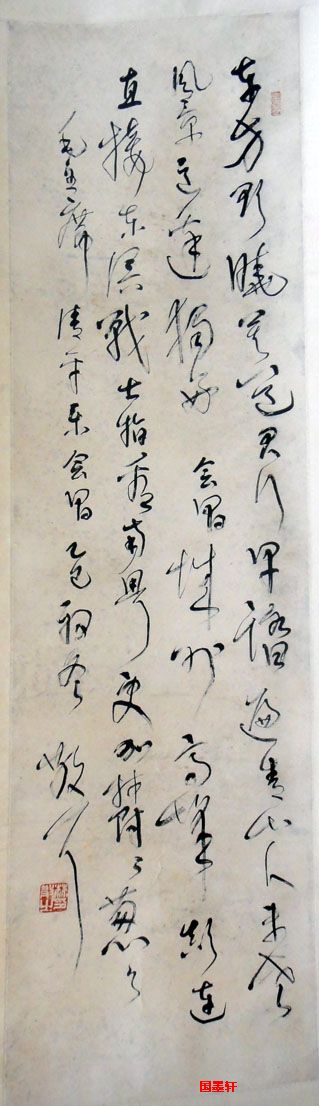 东方欲晓莫道君行早踏遍青山人未老
风景这边独好会昌城外高峰颠连
直接东溟战士指看南粤更加郁郁葱葱
毛主席清平乐会昌乙巳初冬散之
国墨轩